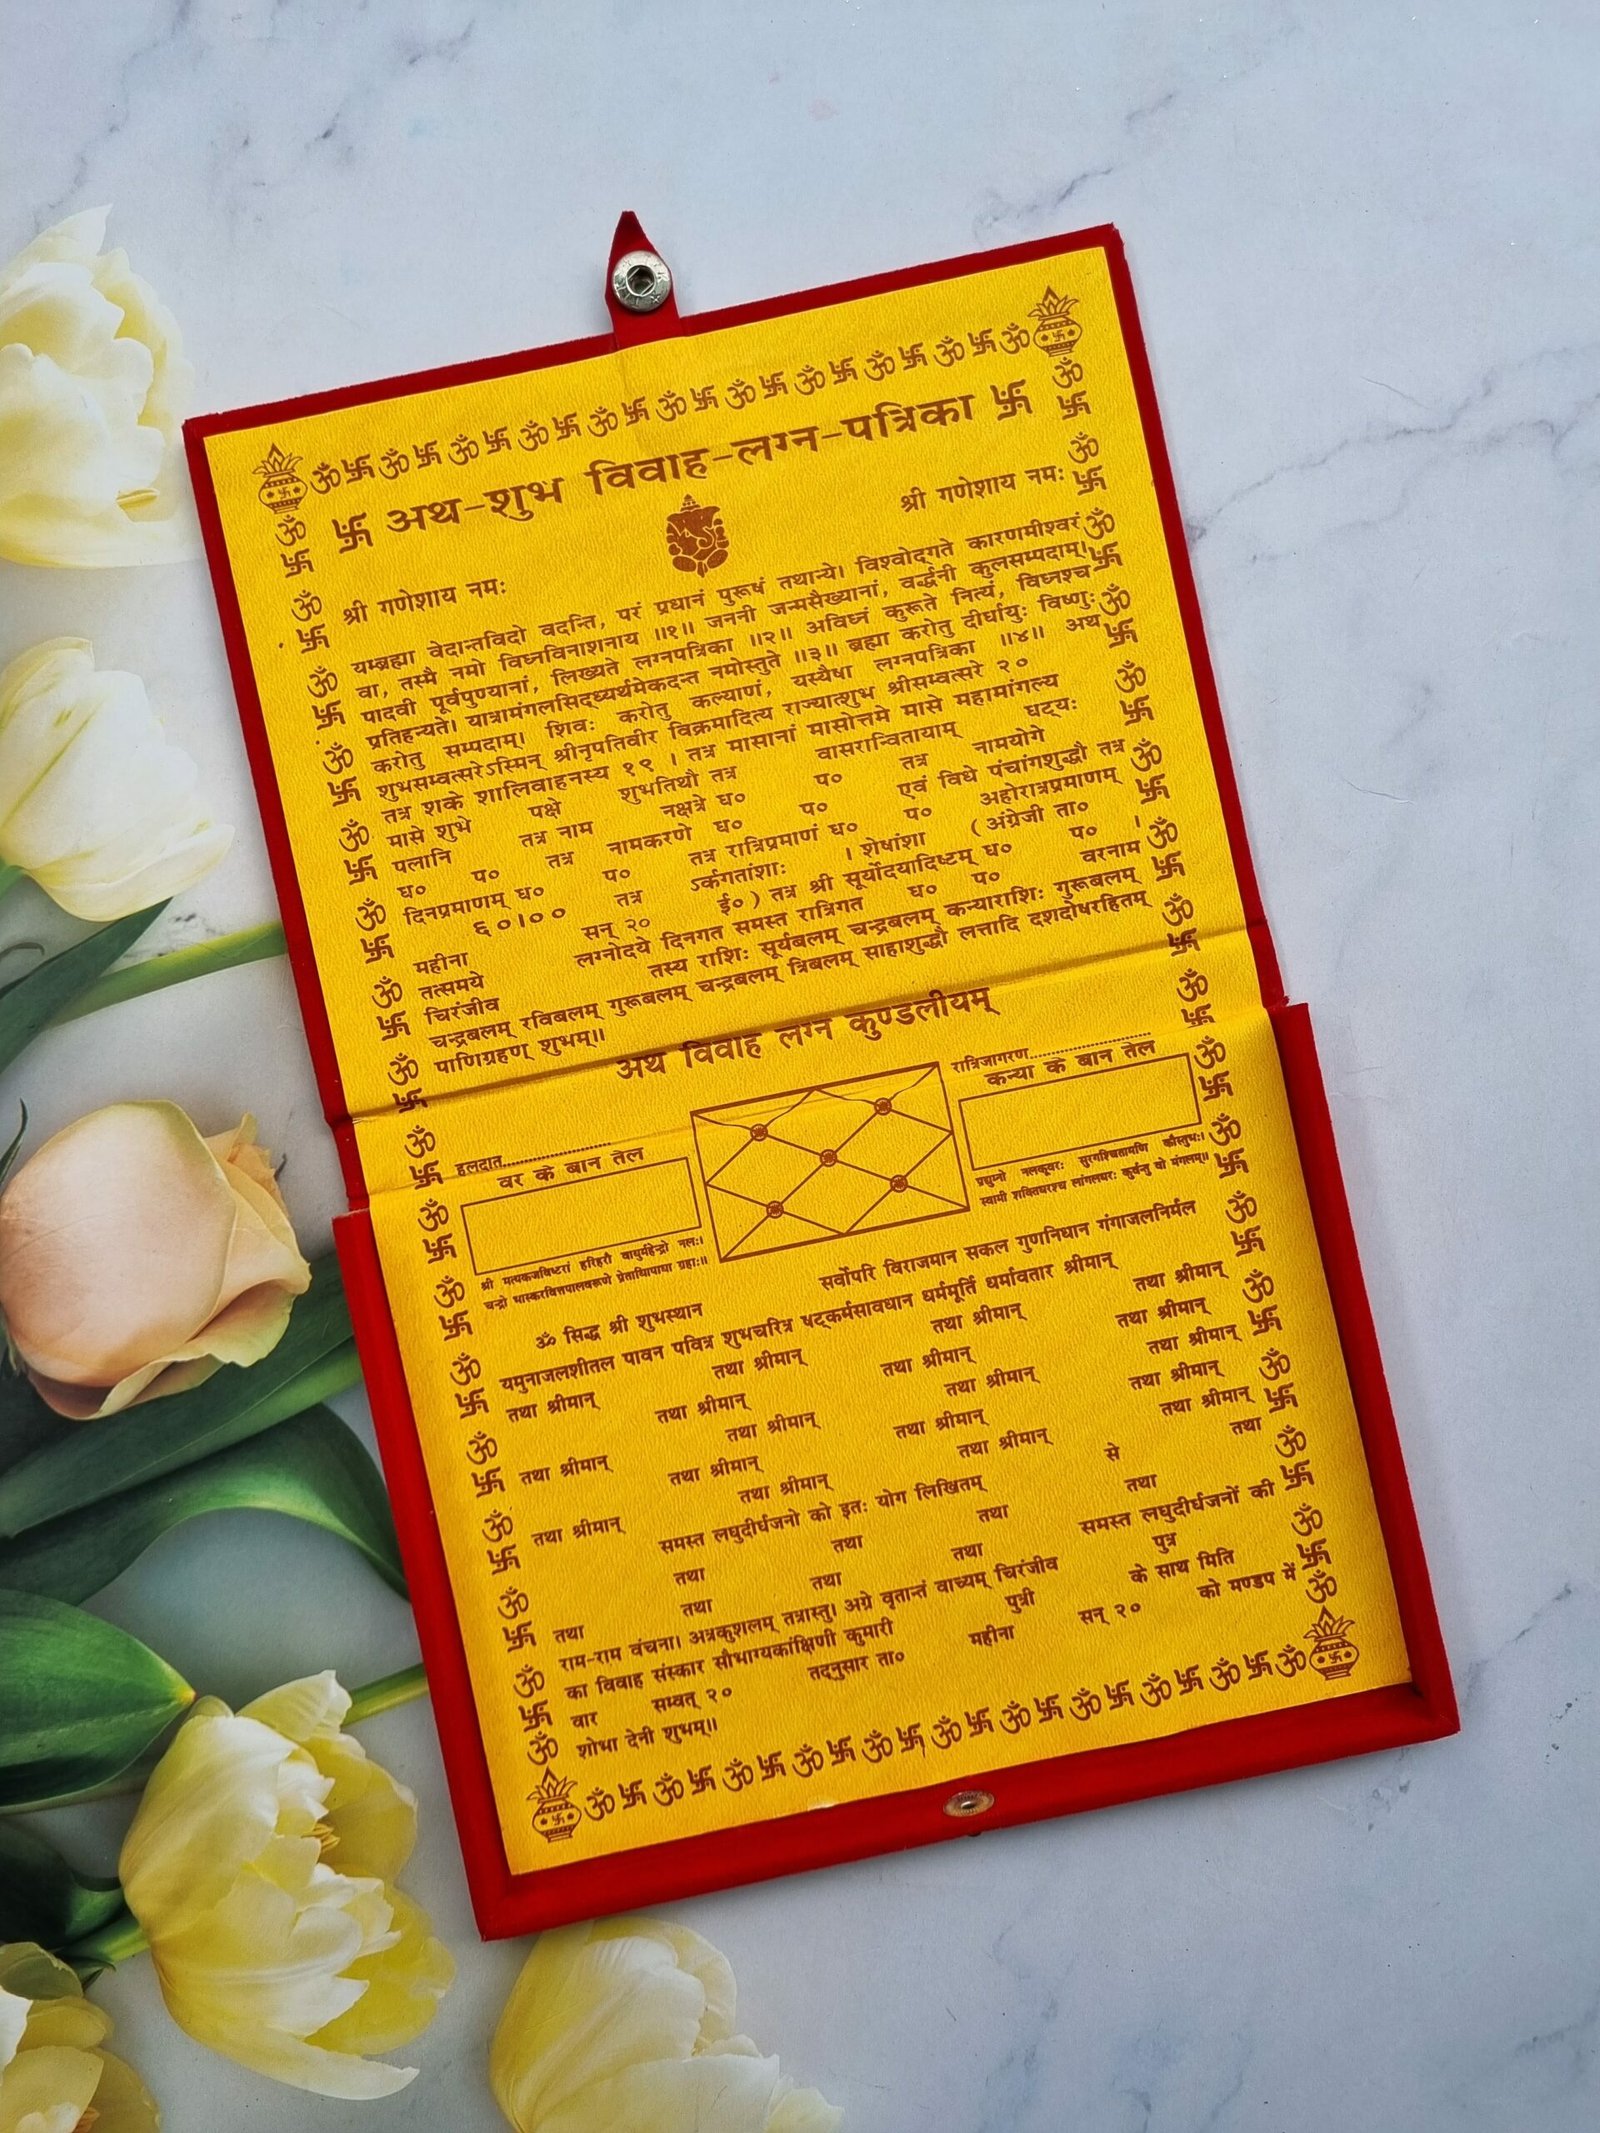 अथ-शुभ विवाह-लग्न-पत्रिका
श्री गणेशाय नमः श्री गणेशाय नमः
यम्ब्रह्मा वेदान्तविदो वदन्ति, परं प्रधानं पुरूषं तथान्ये। विश्वोद्गते कारणमीश्वरं
वा, तस्मै नमो विघ्नविनाशनाय ॥१॥ जननी जन्मसैख्यानां, वर्द्धनी कुलसम्पदाम्।
पादवी पूर्वपुण्यानां, लिख्यते लग्नपत्रिका ॥२॥ अविघ्नं कुरूते नित्यं, विघ्नश्च
प्रतिहन्यते। यात्रामंगलसिद्ध्यर्थमेकदन्त नमोस्तुते ॥३॥ ब्रह्मा करोतु दीर्घायुः विष्णुः
करोतु सम्पदाम्। शिवः करोतु कल्याणं, यस्यैषा लग्नपत्रिका ॥४॥ अथ
शुभसम्वत्सरेऽस्मिन् श्रीनृपतिवीर विक्रमादित्य राज्यात्शुभ श्रीसम्वत्सरे २०
तत्र शके शालिवाहनस्य १९ । तत्र मासानां मासोत्तमे मासे महामांगल्य
मासे शुभे पक्षे शुभतिथौ तत्र वासरान्वितायाम् घट्यः
पलानि तत्र नाम नक्षत्रे घ० प० तत्र नामयोगे
घ० प० तत्र नामकरणे घ० प० एवं विधे पंचांगशुद्धौ तत्र
दिनप्रमाणम् घ० प० तत्र रात्रिप्रमाणं घ० प० अहोरात्रप्रमाणम्
६०।०० तत्र ऽर्कगतांशाः । शेषांशा (अंग्रेजी ता०
महीना सन् २० ई०) तत्र श्री सूर्योदयादिष्टम् घ० प० ।
तत्समये लग्नोदये दिनगत समस्त रात्रिगत घ० प० वरनाम
चिरंजीव तस्य राशिः सूर्यबलम् चन्द्रबलम् कन्याराशिः गुरूबलम्
चन्द्रबलम् रविबलम् गुरूबलम् चन्द्रबलम् त्रिबलम् साहाशुद्धौ लत्तादि दशदोषरहितम्
पाणिग्रहण् शुभम्॥
अथ विवाह लग्न कुण्डलीयम्
हलदात..............................
वर के बान तेल
श्री हरिहरौ नलः।
चन्द्रो ग्रहाः॥
रात्रिजागरण..............................
कन्या के बान तेल
प्रद्युम्नो नलकूवरः कौस्तुभः।
स्वामी शक्तिधरश्च लांगलधरः कुर्वन्तु वो मंगलम्॥
ॐ सिद्ध श्री शुभस्थान सर्वोपरि विराजमान सकल गुणनिधान गंगाजलनिर्मल
यमुनाजलशीतल पावन पवित्र शुभचरित्र षट्कर्मसावधान धर्ममूर्ति धर्मावतार श्रीमान्
तथा श्रीमान् तथा श्रीमान् तथा श्रीमान् तथा श्रीमान्
तथा श्रीमान् तथा श्रीमान् तथा श्रीमान्
तथा श्रीमान् तथा श्रीमान् तथा श्रीमान् तथा श्रीमान्
तथा श्रीमान् तथा श्रीमान् तथा श्रीमान्
तथा श्रीमान् तथा श्रीमान् तथा श्रीमान् तथा श्रीमान्
समस्त लघुदीर्घजनो को इतः योग लिखितम् से तथा
तथा तथा तथा तथा
तथा तथा तथा तथा समस्त लघुदीर्घजनों की
राम-राम वंचना। अत्रकुशलम् तत्रास्तु। अग्रे वृतान्तं वाच्यम् चिरंजीव पुत्र
का विवाह संस्कार सौभाग्यकांक्षिणी कुमारी पुत्री के साथ मिति
वार सम्वत् २० तद्नुसार ता० महीना सन् २० को मण्डप में
शोभा देनी शुभम्॥